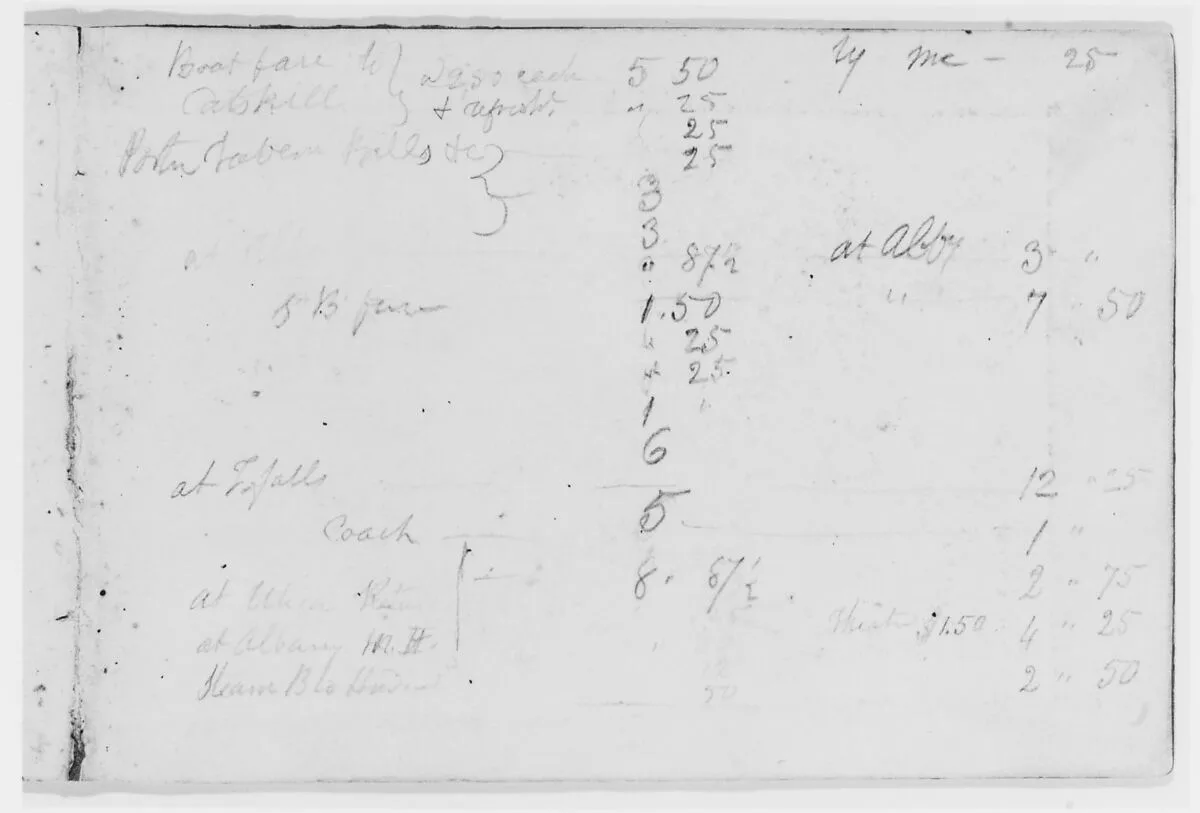 Boat fare to } 2.50 each 5 50 by me - 25
Catskill } & refresht " 25
25
Porter Tavern Bills &c } 25
3
3
at " 87½ at Alby 3 "
B fare 1.50 " 7 " 50
" 25
" 25
1 "
6
at T falls 12 " 25
5
Coach 1 "
at Utica 8 " 67½ 2 " 75
at Albany $1.50 4 " 25
Steam B to 50 2 " 50